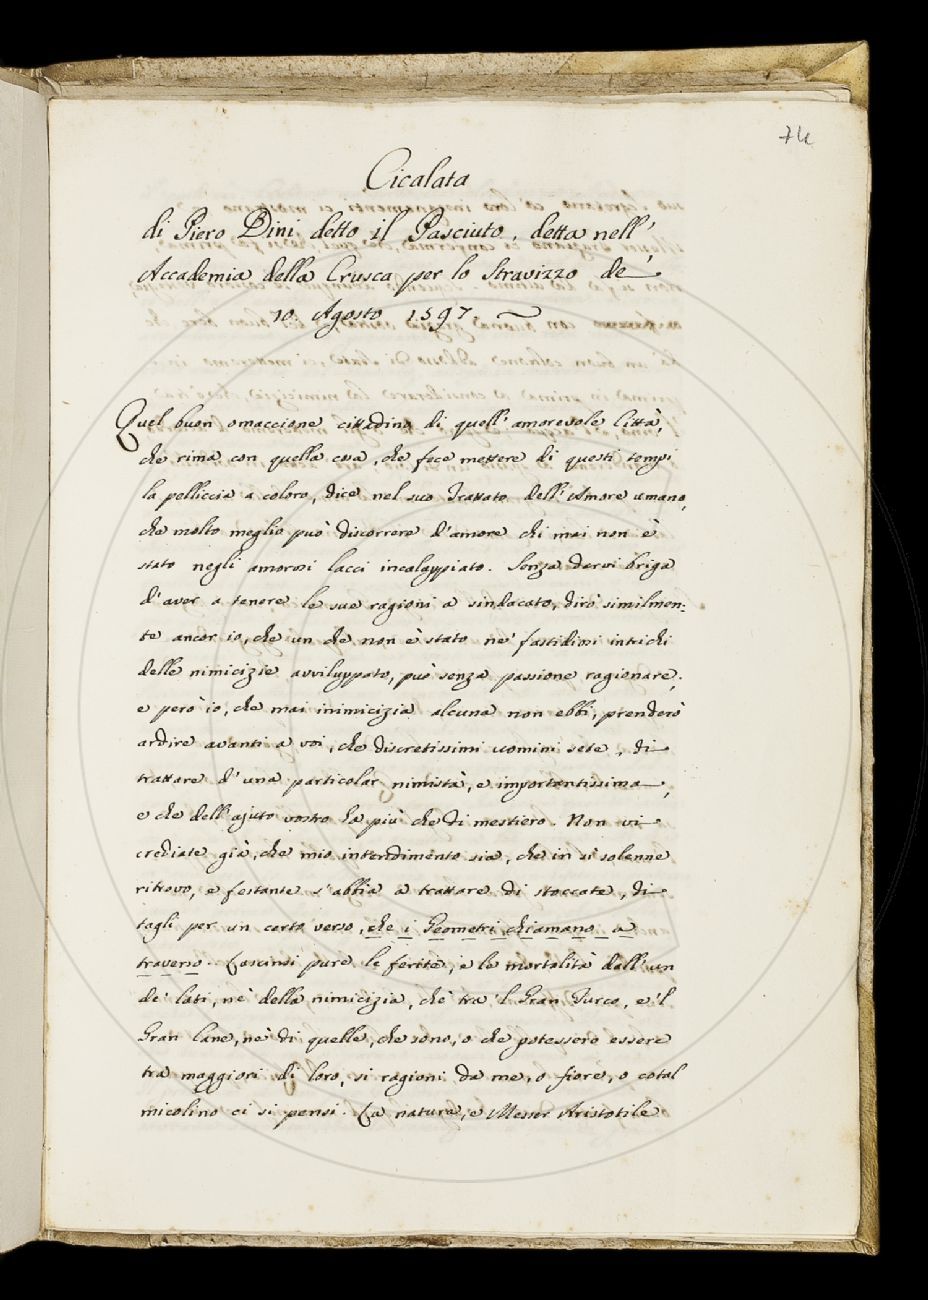 74
Cicalata
di Piero Dini detto il Pasciuto, detta nell'
Accademia della Crusca per lo Stravizzo de'
10 Agosto 1597
Quel buon omaccione cittadino di quell'amorevole Città,
che rima con quella cosa, che fece mettere di questi tempi
la pelliccia a coloro, dice nel suo Trattato dell'Amore umano,
che molto meglio può discorrere d'amore chi mai non è
stato negli amorosi lacci incalappiato. Senza darvi briga
d'aver a tenere le sue ragioni a sindacato, dirò similmen:
te ancor io, che un che non è stato ne' fastidiosi intrichi
delle nimicizie avviluppato, può senza passione ragionare;
e però io, che mai inimicizia alcuna non ebbi, prenderò
ardire avanti a voi, che discretissimi uomini sete, di
trattare d'una particolar nimistà, e importantissima,
e che dell'ajuto vostro ha più che di mestiero. Non vi
crediate già, che mio intendimento sia, che in sì solenne
ritrovo, e festante s'abbia a trattare di stoccate, di
tagli per un certo verso, che i Geometri chiamano a
traverso. Lascinsi pure le ferite, e le mortalità dall'un
de' lati, nè della nimicizia, ch'è tra 'l Gran Turco, e 'l
Gran Cane, nè di quelle, che sono, o che potessero essere
tra maggiori di loro, si ragioni da me, o fiore, o cotal
micolino ci si pensi. La natura, e Messer Aristotile